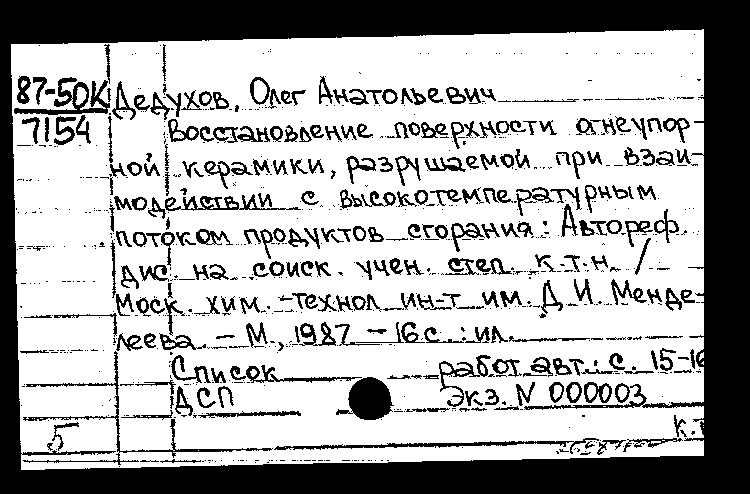 87-50К Дедухов, Олег Анатольевич
7154 Восстановление поверхности огнеупор-
ной керамики, разрушаемой при взаи-
модействии с высокотемпературным
потоком продуктов сгорания: Автореф.
дис. на соиск. учен. степ. к.т.н. /
Моск. хим.-технол ин-т им. Д И. Менде-
леева. - М., 1987 - 16 с. : ил.
Список работ авт.: с. 15-16
ДСП Экз. N 000003
5 к.т